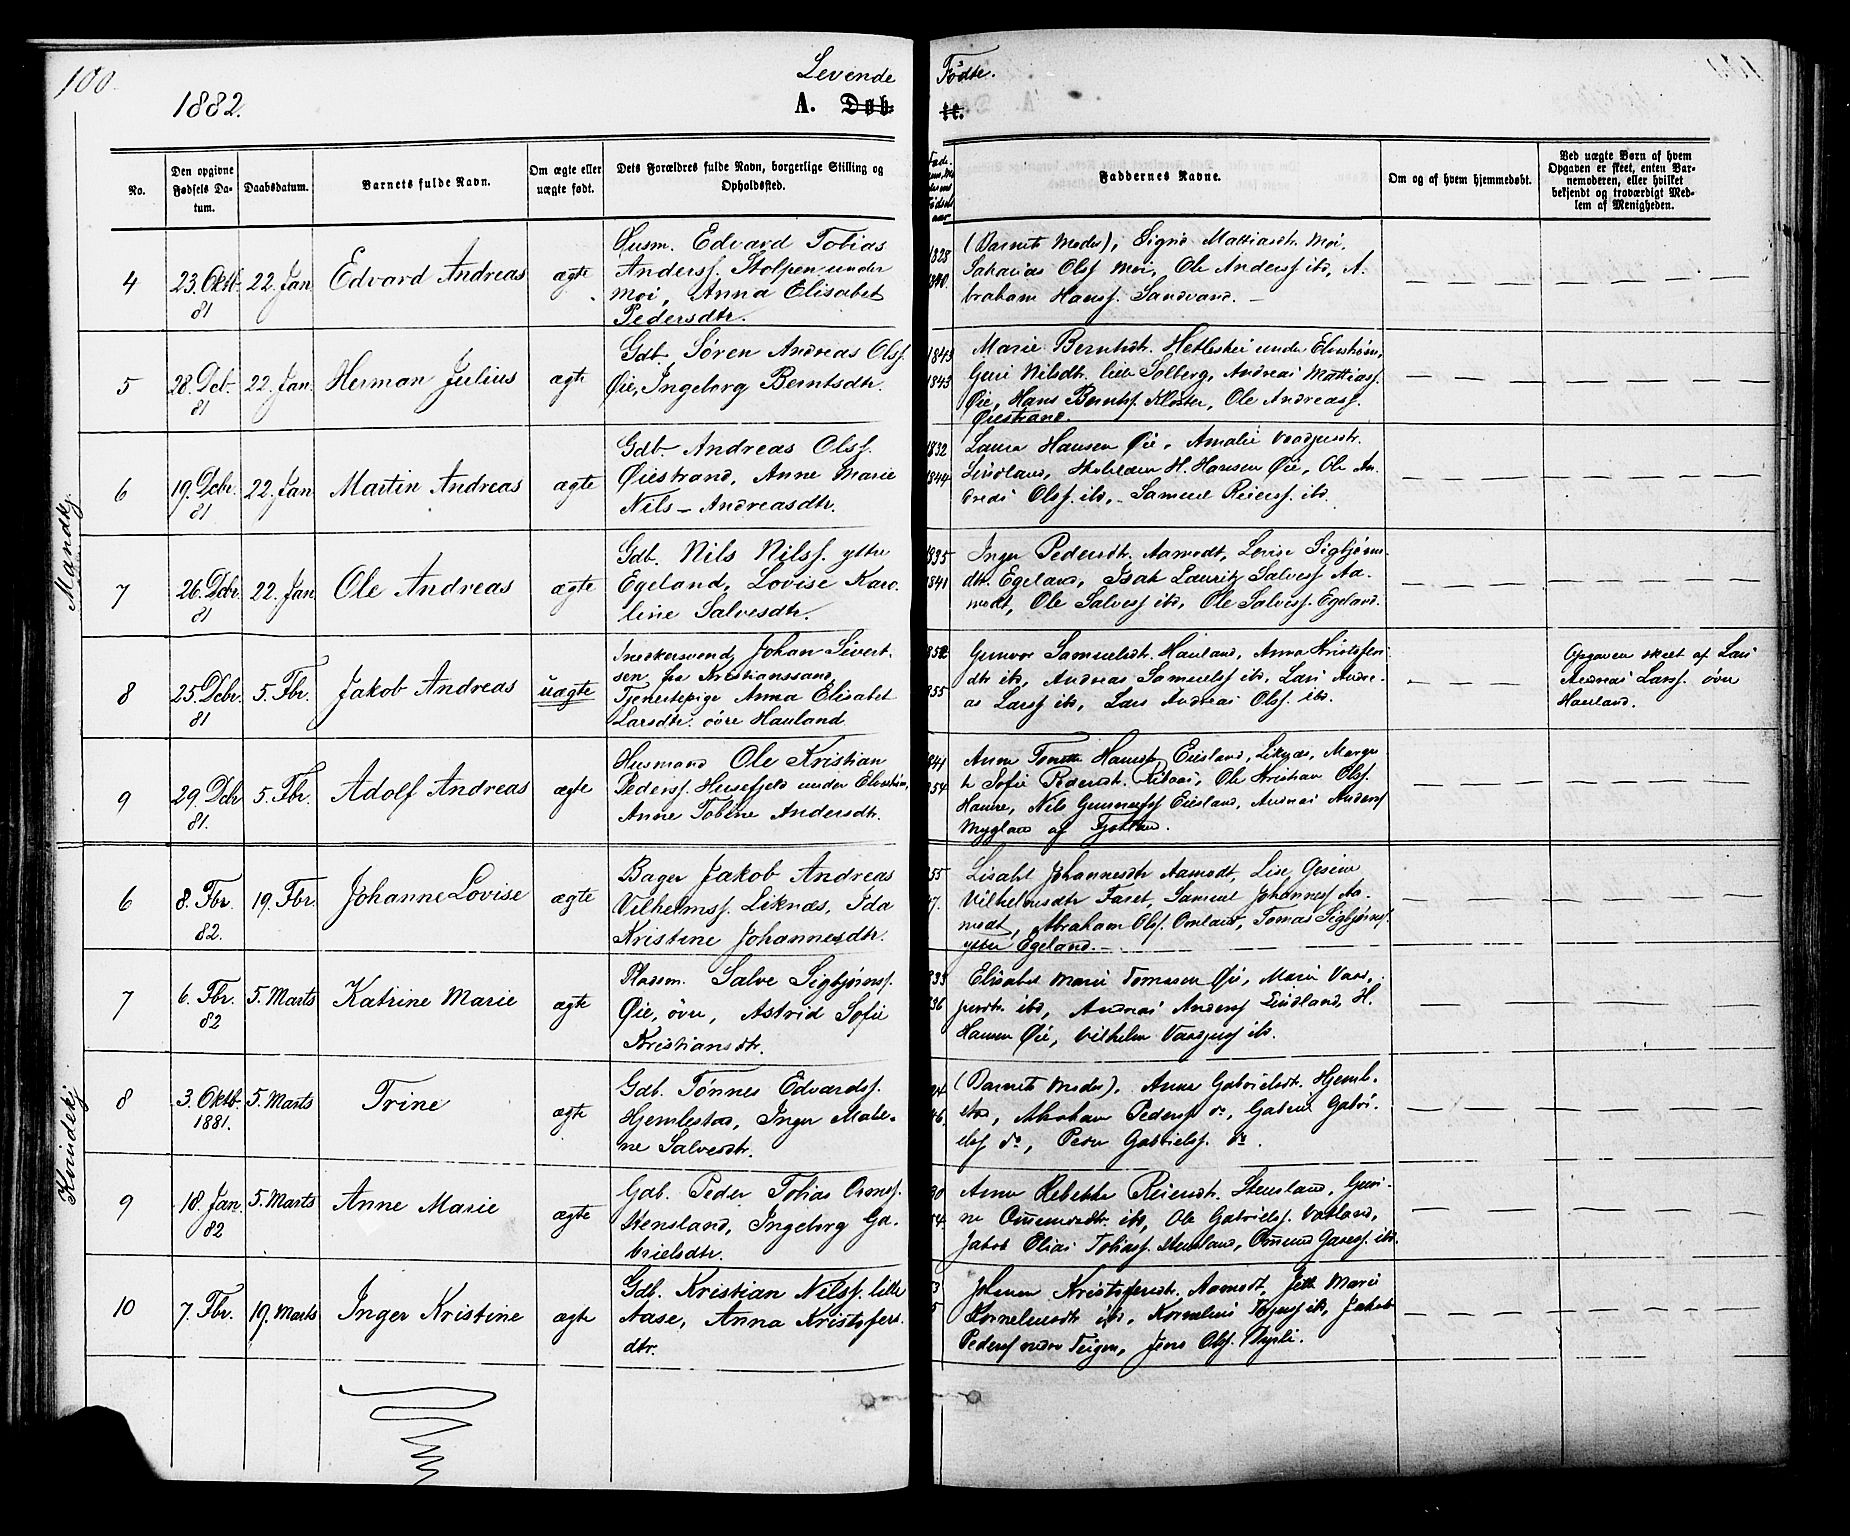 100.
1882.
Levende
Fødte.
A. Døb
te.
No.
Den opgivne Fødsels Datum.
Daabsdatum.
Barnets fulde Navn.
Om ægte eller uægte født.
Dets Forældres fulde Navn, borgerlige Stilling og Opholdsfted.
Faddernes Navne.
Om og af hvem hjemmedøbt.
Ved uægte Børn af hvem Opgaven er skeet, enten Barnemoderen, eller hvilket bekjendt og troværdigt Medlem af Menigheden.
Mandkj.
4
23. Oktb. 81
22. Jan
Edvard Andreas
ægte
Husm. Edvard Tobias
Anderss. Stolpen under
Moi, Anna Elisabet
Pedersdtr.
1828
1840.
(Barnets Moder), Signe Mattiasdtr. Moi,
Sakarias Olss. Moi, Ole Anderss. ibd, A-
braham Hanss. Sandvand.
5
28. Dcb. 81
22. Jan.
Herman Julius
ægte
Gdb. Søren Andreas Olss.
Øie, Ingeborg Berntsdtr.
1843
1843
Marie Berntsdtr. under
Guri Nilsdtr. lille Solberg, Andreas Mattiass.
Øie, Hans Berntss. Kloster, Ole Andreass.
Øiestrand.
6
19. Dcbr. 81
22. Jan
Martin Andreas
ægte
Gdb. Andreas Olss.
Øiestrand, Anne Marie
Nils-Andreasdtr.
1832
1844
Laura Hansen Øie, Amalie
Lindland, H. Hansen Øie, Ole An-
dreas Olss. ibd, Samuel Reierss. ibd.
7
26. Dcbr. 81
22. Jan
Ole Andreas
ægte
Gdb. Nils Nilss. ytre
Egeland, Lovise Karo-
line Salvesdtr.
1835
1841
Inger Pedersdtr. Aamodt, Lovise Sigbjørns-
dtr. Egeland, Isak Lauritz Salvess. Aa-
modt, Ole Salvess. ibd, Ole Salvess. Egeland.
8
25. Dcbr. 81
5. Fbr.
Jakob Andreas
uægte
Snedkersvend Johan Sivert-
sen fra Kristianssand,
Tjenestepige Anna Elisabet
Larsdtr. øvre Hauland
852
855
Gunvor Samuelsdtr. Hauland, Anna Kristofers-
dtr. ibd, Andreas Samuelss. ibd, Lars Andre-
as Larss. ibd, Lars Andreas Olss. ibd.
Opgaven skeet af Lars
Andreas Larss. øvre
Hauland.
9
29. Dcbr 81.
5. Fbr.
Adolf Andreas
ægte
Husmand Ole Kristian
Pederss. under
Anne Tobine Andersdtr.
841
854
Anne Eiesland, Liknæs, Margre-
te Sofie Pedersdtr. Ole Kristian Olss.
Haune, Nils Eiesland, Andreas Anderss.
Mygland af Fjotland.
Kvindekj
6
8. Fbr. 82.
19. Fbr.
Johanne Lovise
ægte
Bager Jakob Andreas
Vilhelmss. Liknæs, Ida
Kristine Johannesdtr.
55
Lisabet Johannesdtr Aamodt, Lise Gesine
Vilhelmsdtr Faret, Samuel Johanness. Aa-
modt, Abraham Olss. Omland, Tomas Sigbjørnss.
ytre Egeland.
7
6. Fbr. 82
5. Marts
Katrine Marie
ægte
Pladsm. Salve Sigbjørnss.
Øie, øvre, Astrid Sofie
Kristiansdtr.
835
836
Elisabet Marie Tomasen Øie, Marie
ibd, Andreas Anderss. Lindland, H.
Hansen Øie, Vilhelm ibd.
8
3. Oktb. 1881.
5. Marts
Trine
ægte
Gdb. Tønnes Edvardss.
Hjemlestad, Inger Male-
ne Salvesdtr.
46.
(Barnets Moder), Anne Gabrielsdtr. Hjemle-
stad, Abraham Pederss. do, Gabriel Gabri-
elss. do, Peder Gabrielss. do.
9
18. Jan. 82
5. Marts
Anne Marie
ægte
Gdb. Peder Tobias Omss.
Stensland, Ingeborg Ga-
brielsdtr.
30
54.
Anne Rebekke Reiersdtr. Stensland, Guri-
ne Ommundsdtr. ibd, Ole Gabrielss. Vatland,
Jakob Elias Tobiass. Stensland, Ommund ibd.
10
7. Fbr.
19. Marts
Inger Kristine
ægte
Gdb. Kristian Nilss. lille
Aase, Anna Kristofers-
dtr.
3
5
Johanne Kristofersdtr. Aamodt, Marie
Korneliusdtr ibd, Kornelius ibd, Jakob
Pederss. nedre Teigen, Jens Olss.